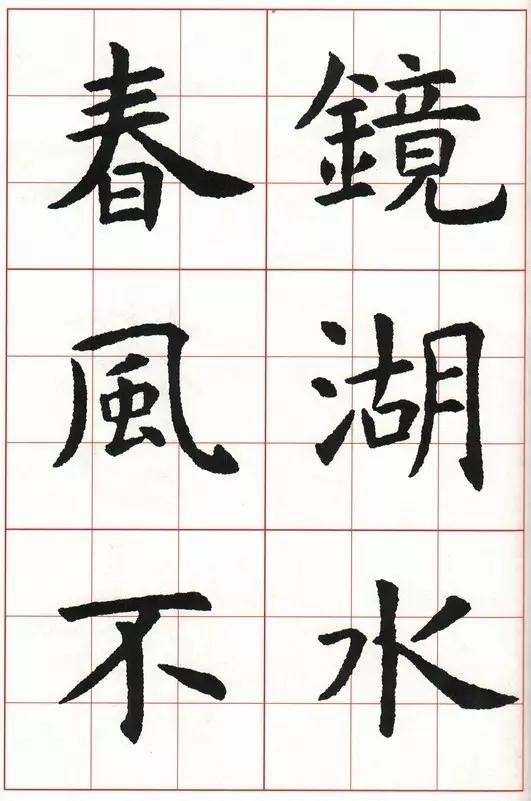 鏡湖水
春風不